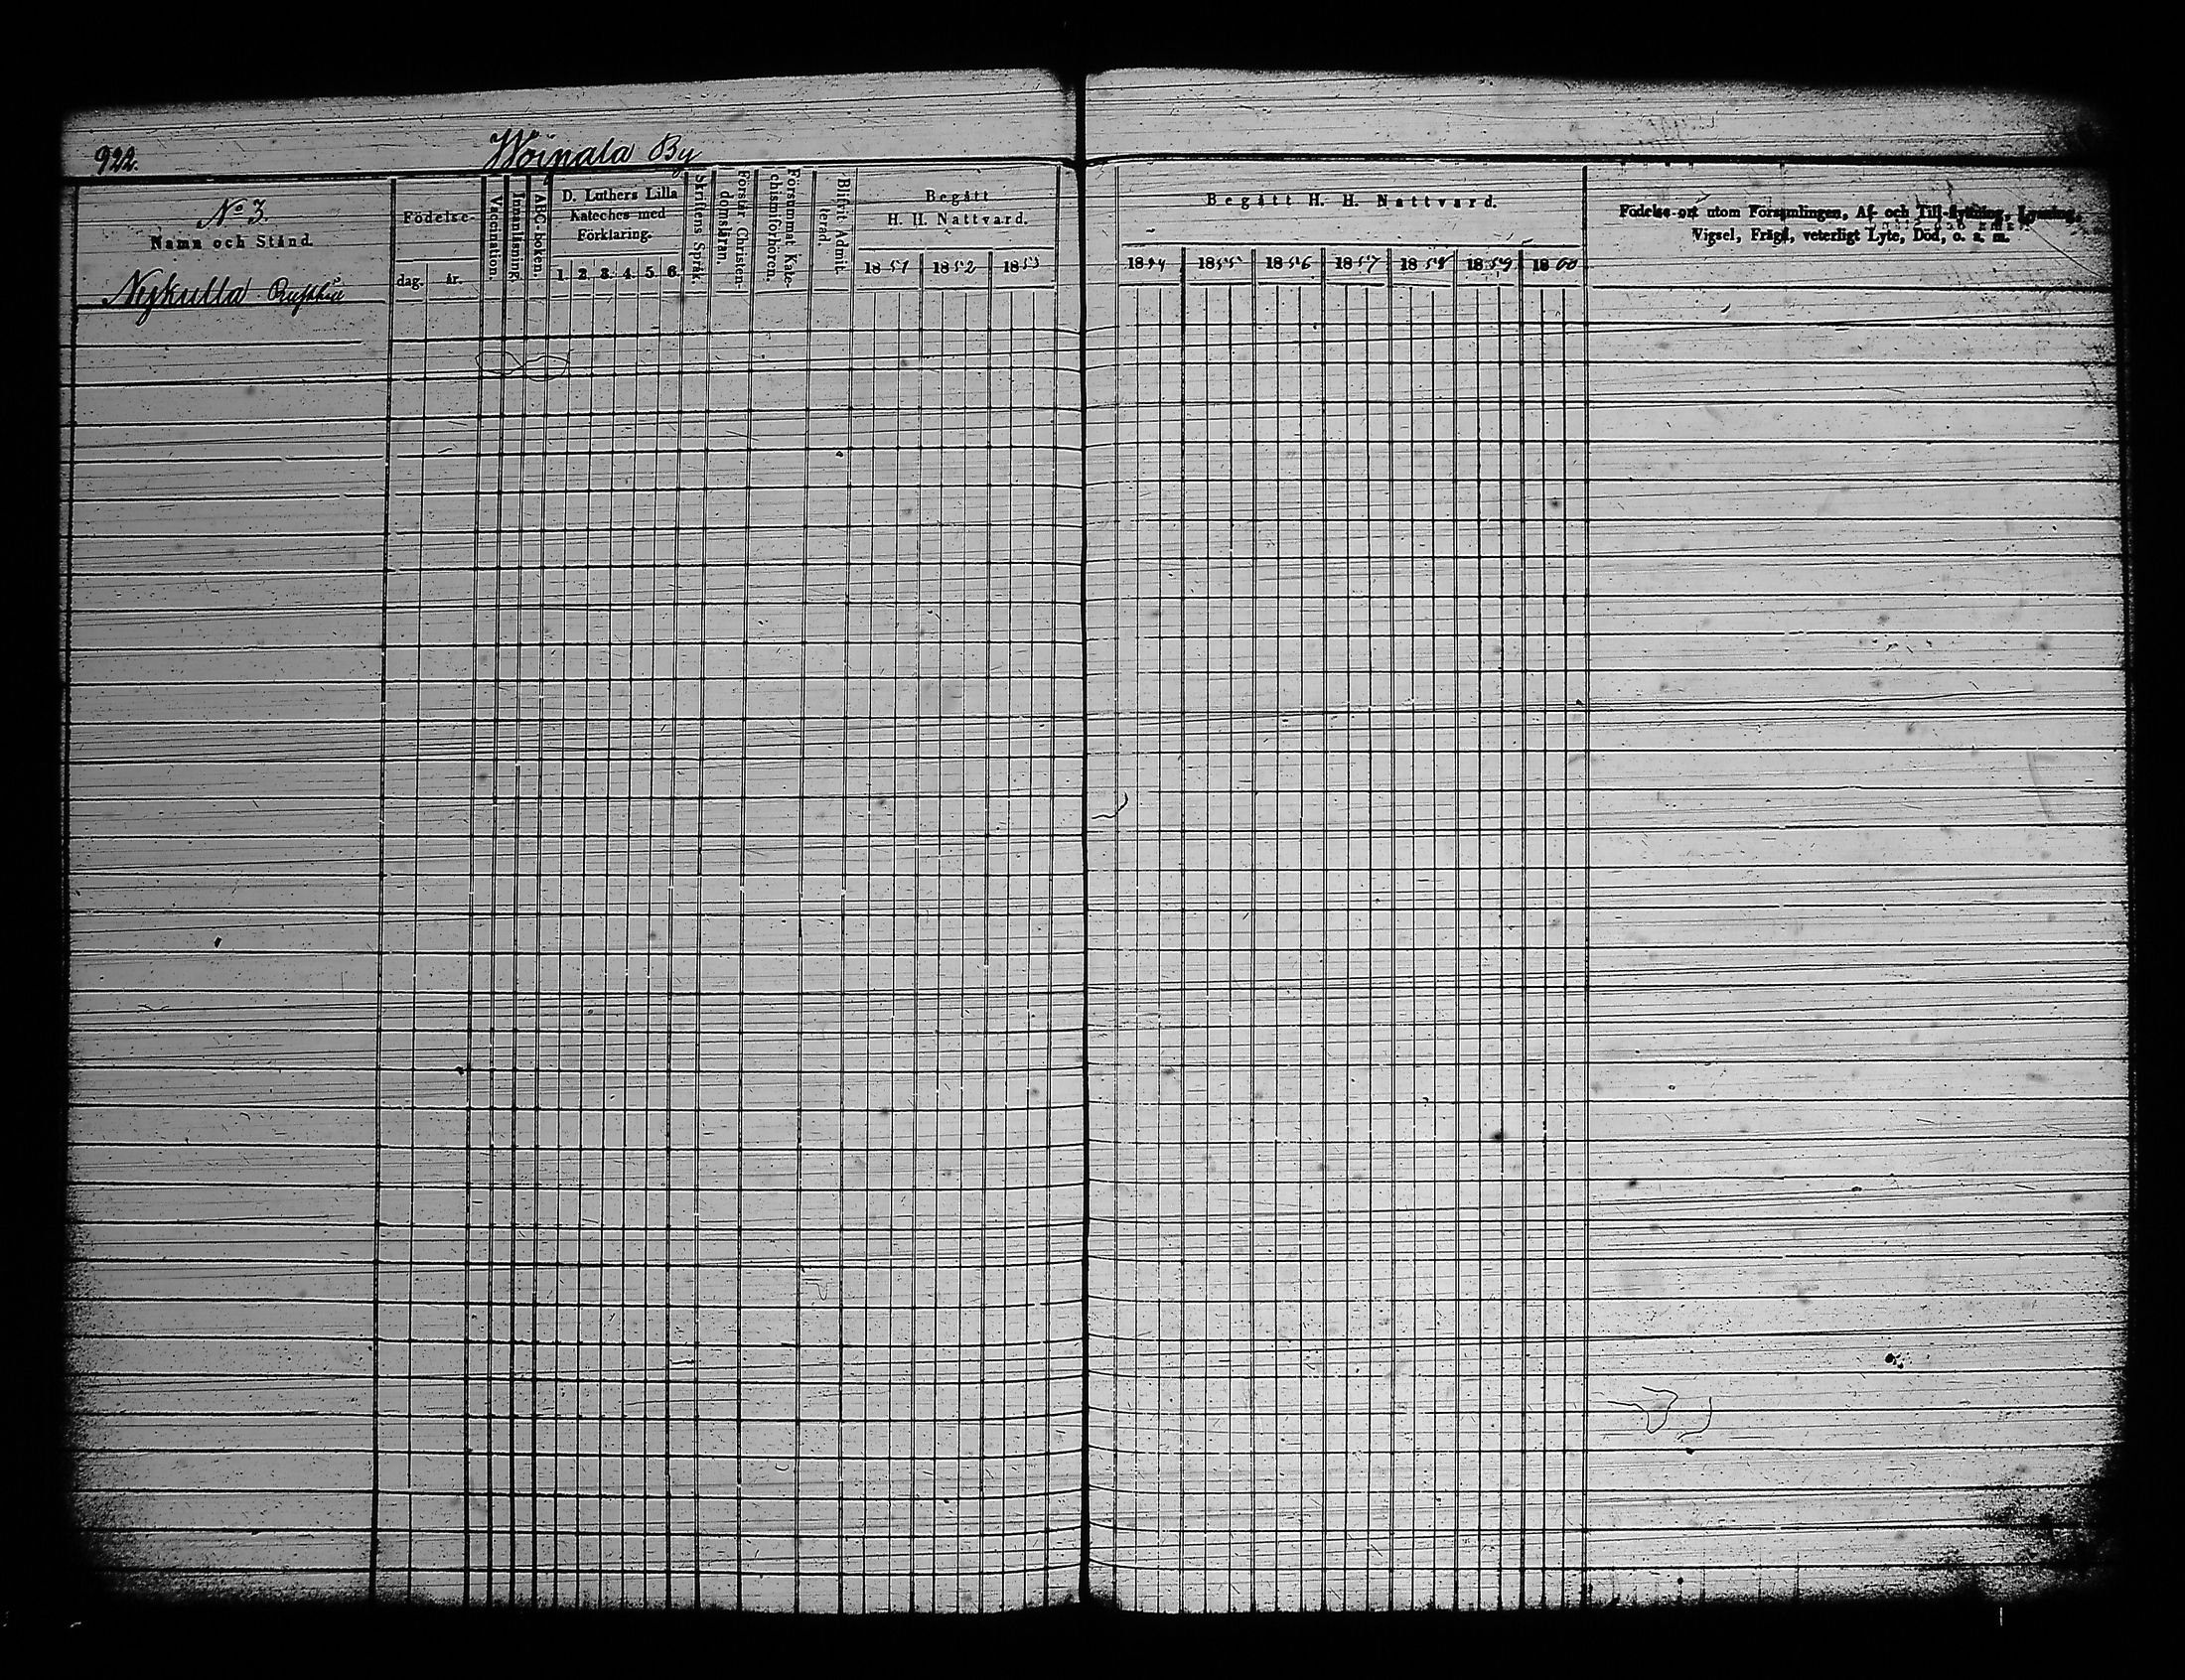 922.
Woipala By
No 3.
Namn och Stånd.
Nykulla
Födelse-
dag. år.
Vaccination.
Innanläsning.
ABC-boken.
D. Luthers Lilla
Kateches med
Förklaring.
1. 2. 3. 4. 5. 6.
Skriftens Språk.
Förstår Christen-
domsläran.
Försummat Kate-
chismiförhören.
Blifvit Admit-
terad.
Begått
H. H. Nattvard.
1851 1852 1853
Begått H. H. Nattvard.
1854 1855 1856 1857 1858 1859 1860
Födelse-ort utom Församlingen, Af- och Till-flyttning, Lysning,
Vigsel, Frägd, veterligt Lyte, Död, o. s. m.